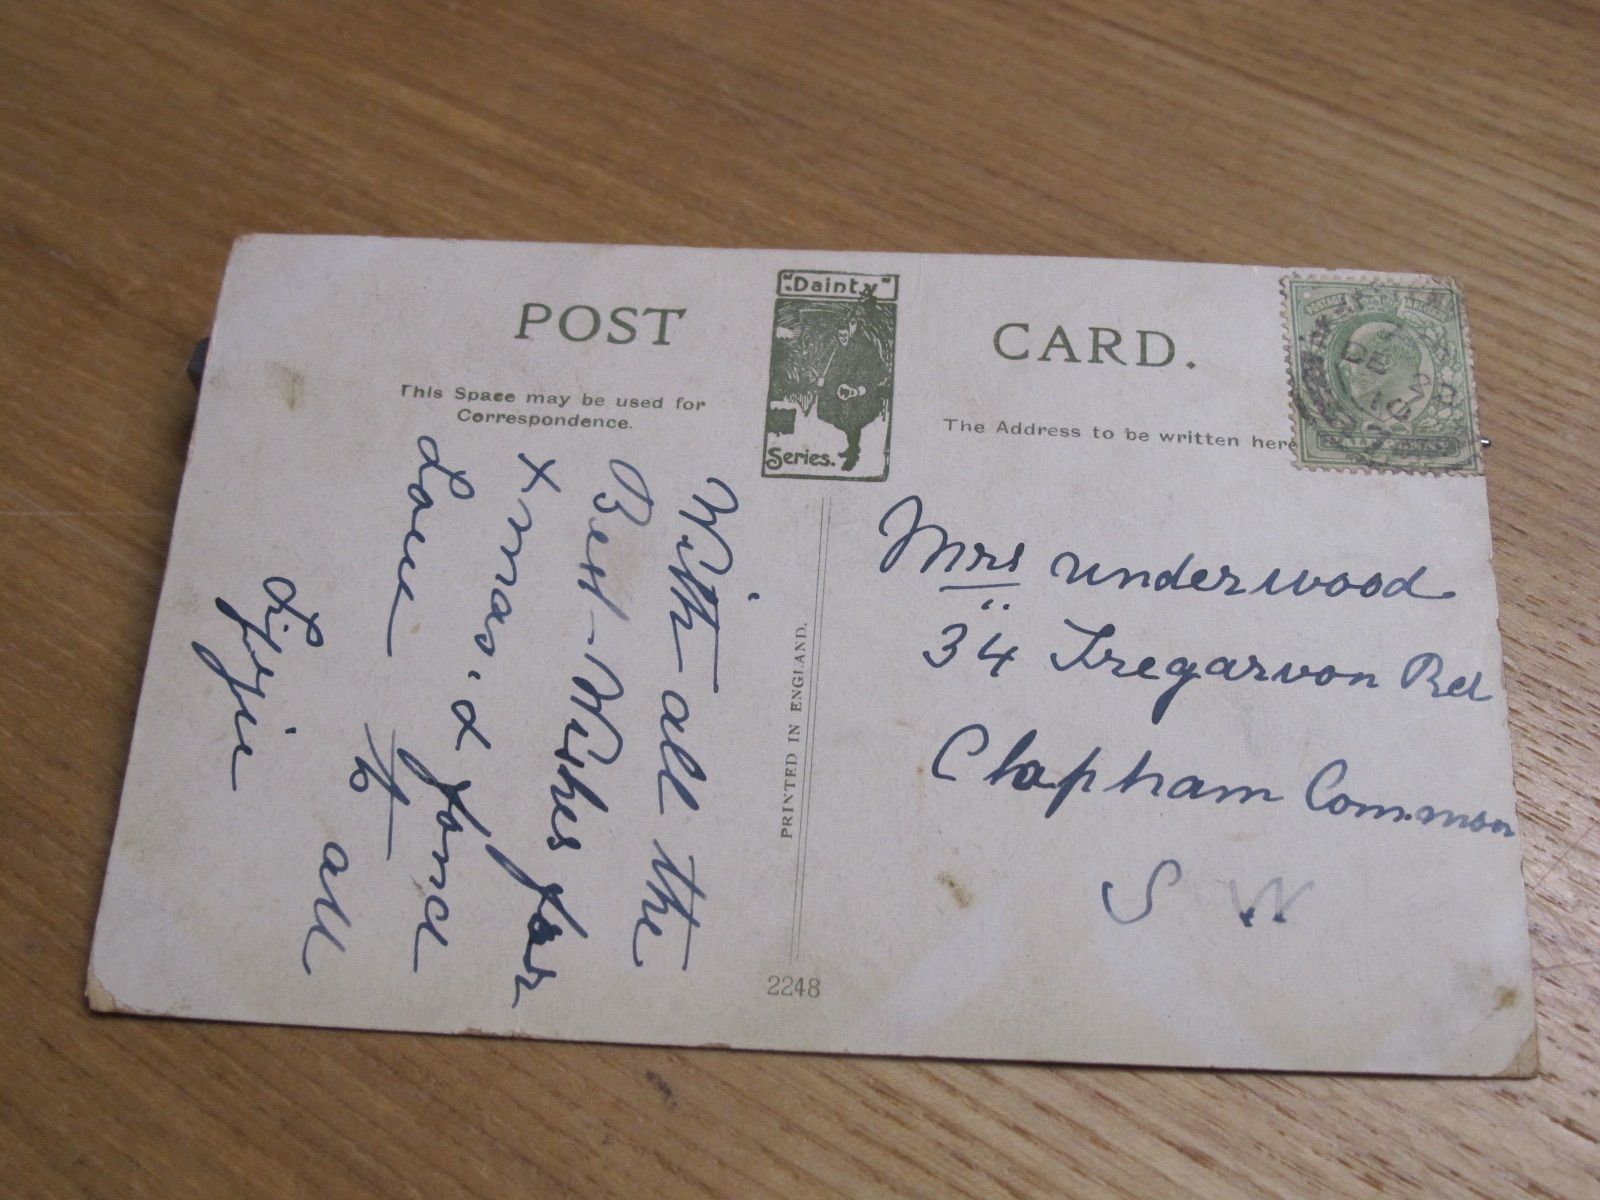 POST CARD.
"Dainty"
Series.
This Space may be used for
Correspondence.
The Address to be written here
With all the
Best Wishes for
Xmas. & fond
Love to all
Lizzie
PRINTED IN ENGLAND.
2248
Mrs underwood
34 Tregarvon Rd
Clapham Common
S W
DE 2
10